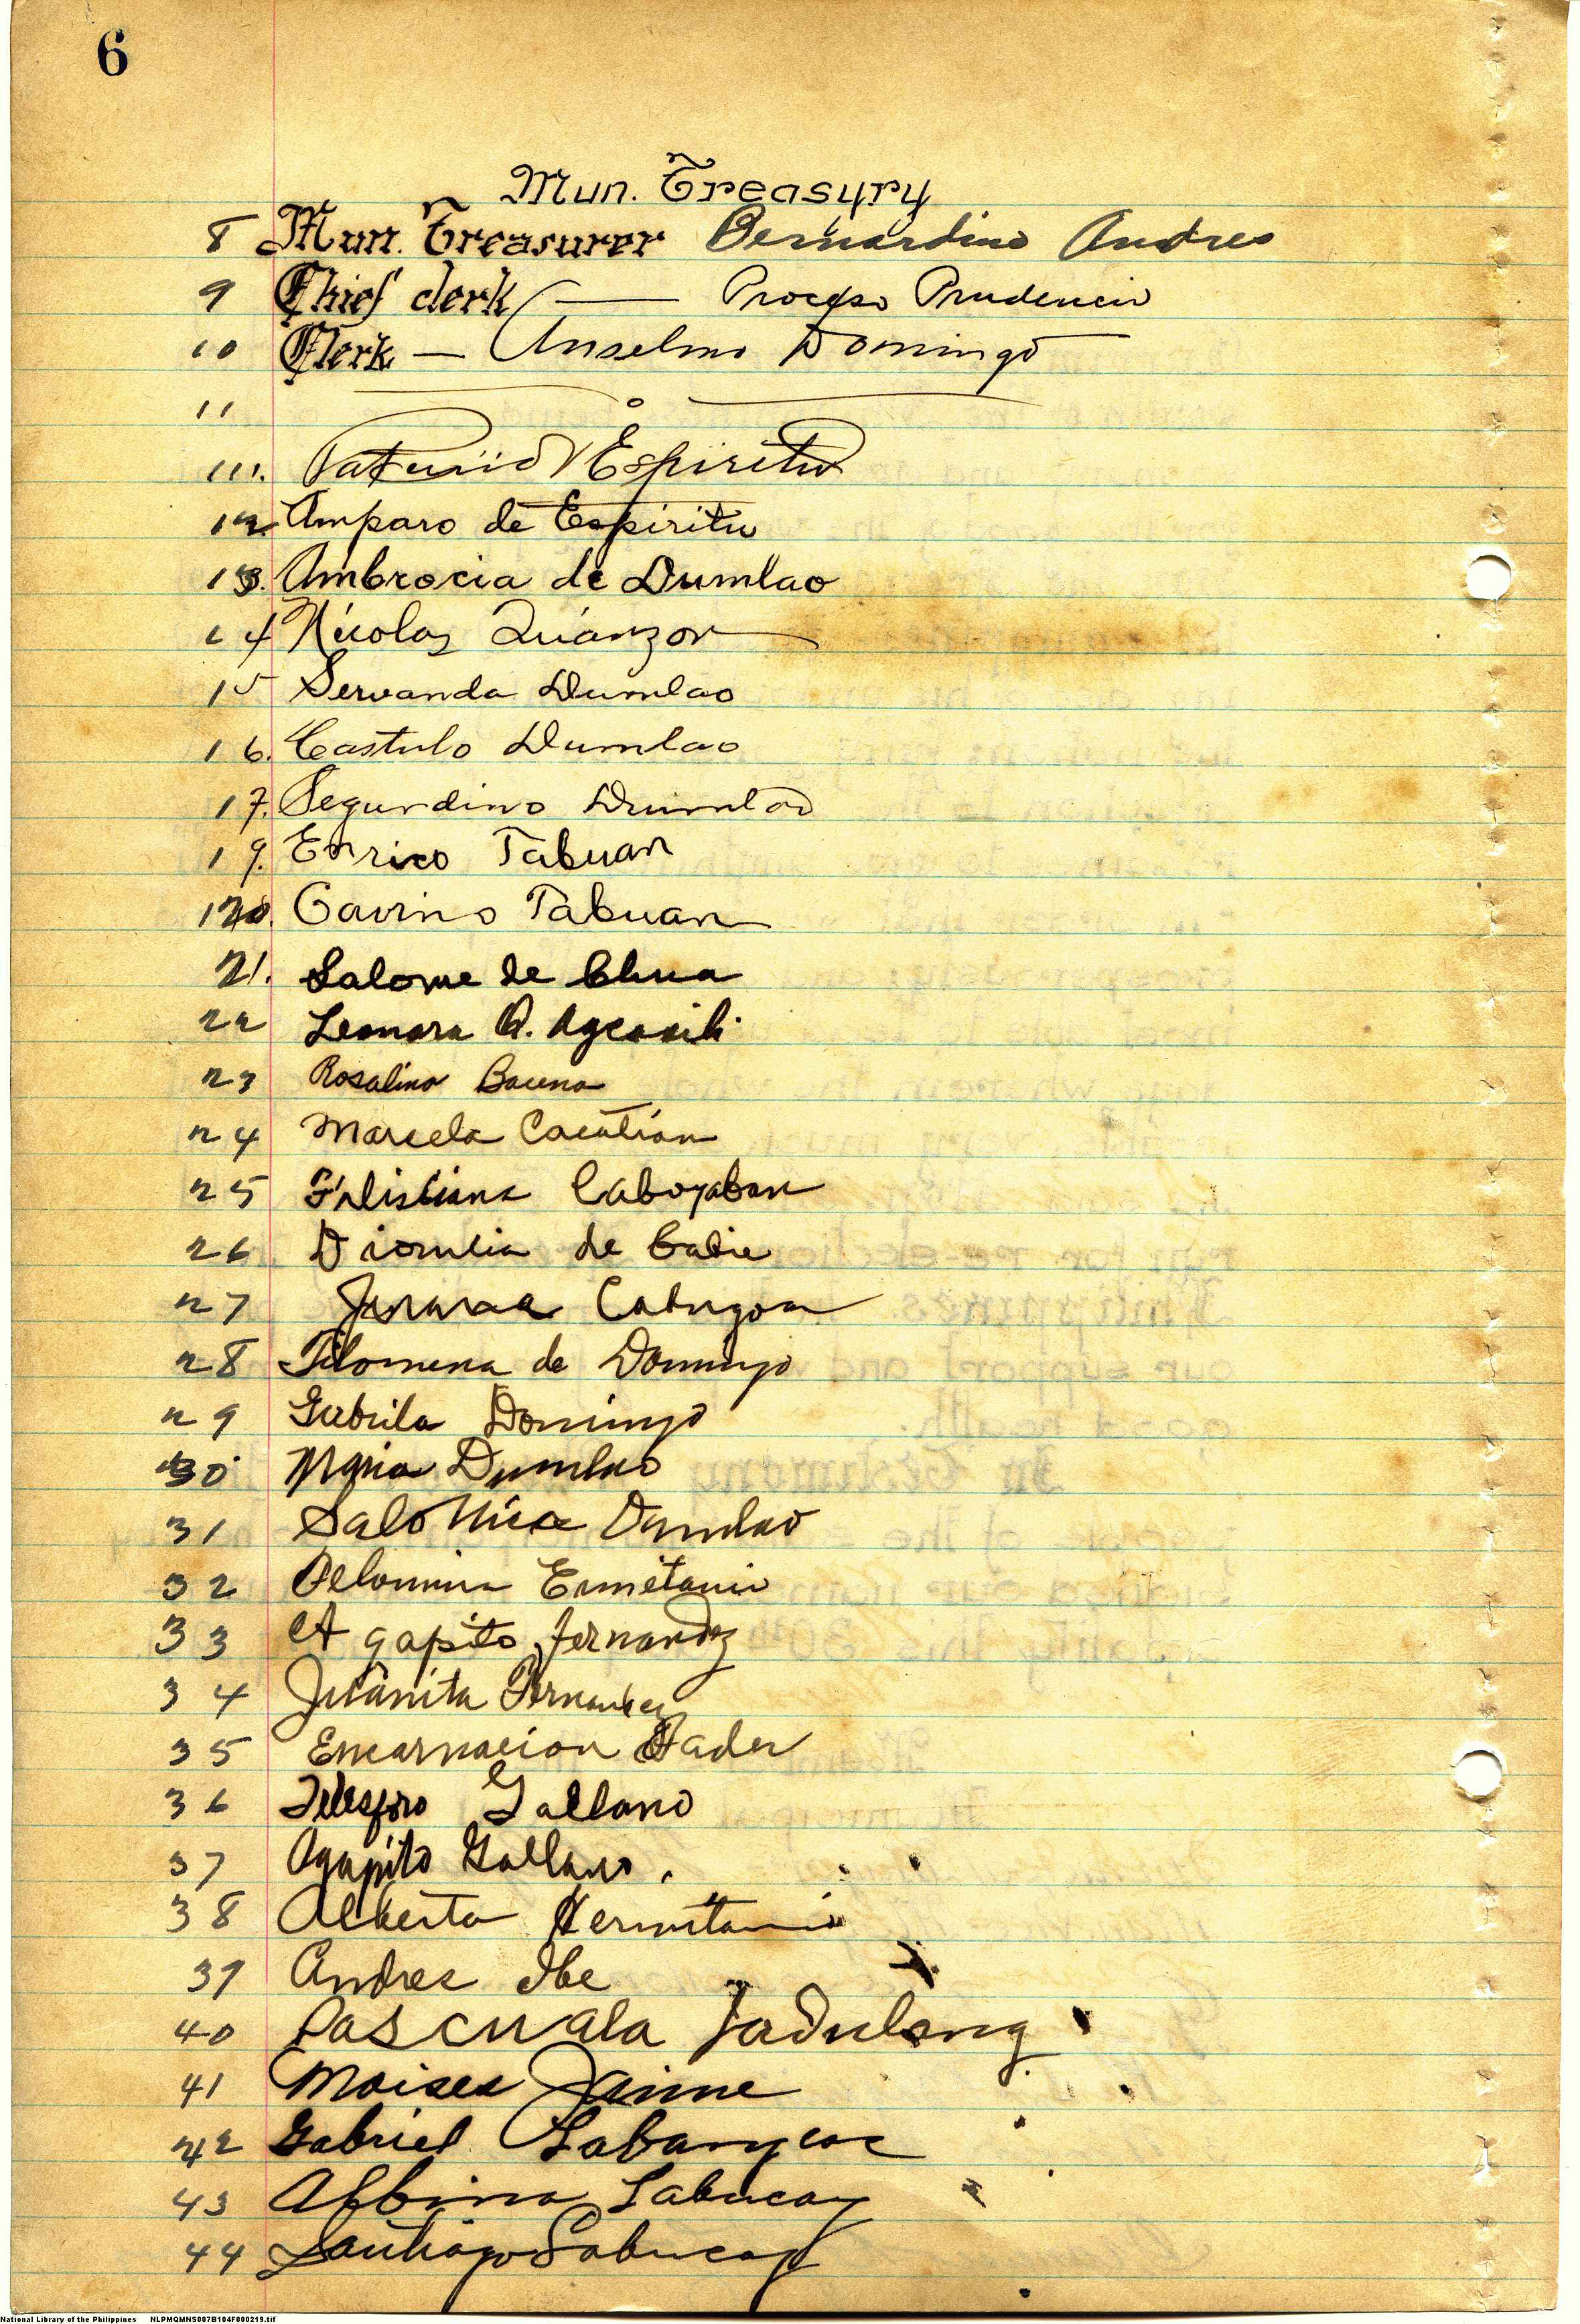 6
Mun. Treasury
8 Mun. Treasurer Bernardino Andres
9 Chief clerk — Proceso Prudencio
10 Clerk — Anselmo Domingo
11
111. Espiritu
12. Amparo de Espiritu
13. Ambrocia de Dumlao
14 Nicolas Quianzon
15 Servanda Dumlao
16. Castulo Dumlao
17. Segundino Dumlao
19. Enrico Tabuan
120. Gavino Tabuan
21. Salome de Chua
22 Leonora Q. Agcaoili
23 Rosalina Bacena
24 Marcela Cacatian
25 Caboyaban
26 de
27
28 Filomena de Domingo
29 Gabrila Domingo
30 Maria Dumlao
31 Dumlao
32 Ermitanio
33 Agapito Fernandez
34 Juanita Fernandez
35 Encarnacion
36 Telesforo Gallano
37 Agapito Gallano.
38 Alberta Hermitanio
39 Andres Ibe
40 Pascuala
41 Moises Jaime
42 Gabriel
43 Albina Labucay
44 Santiago Labucay
National Library of the Philippines NLPMQMNS007B104F000219.tif